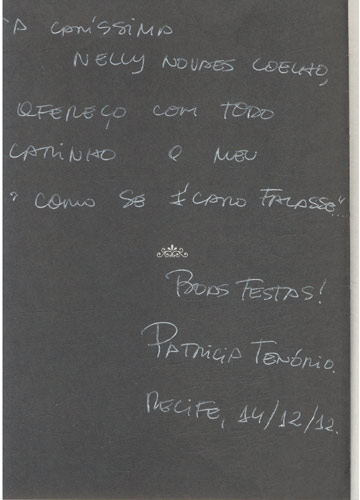 À CARÍSSIMA
NELLY NOVAES COELHO,
OFEREÇO COM TODO
CARINHO O MEU
"COMO SE ÍCARO FALASSE"...
BOAS FESTAS!
PATRICIA TENÓRIO.
RECIFE, 14/12/12.